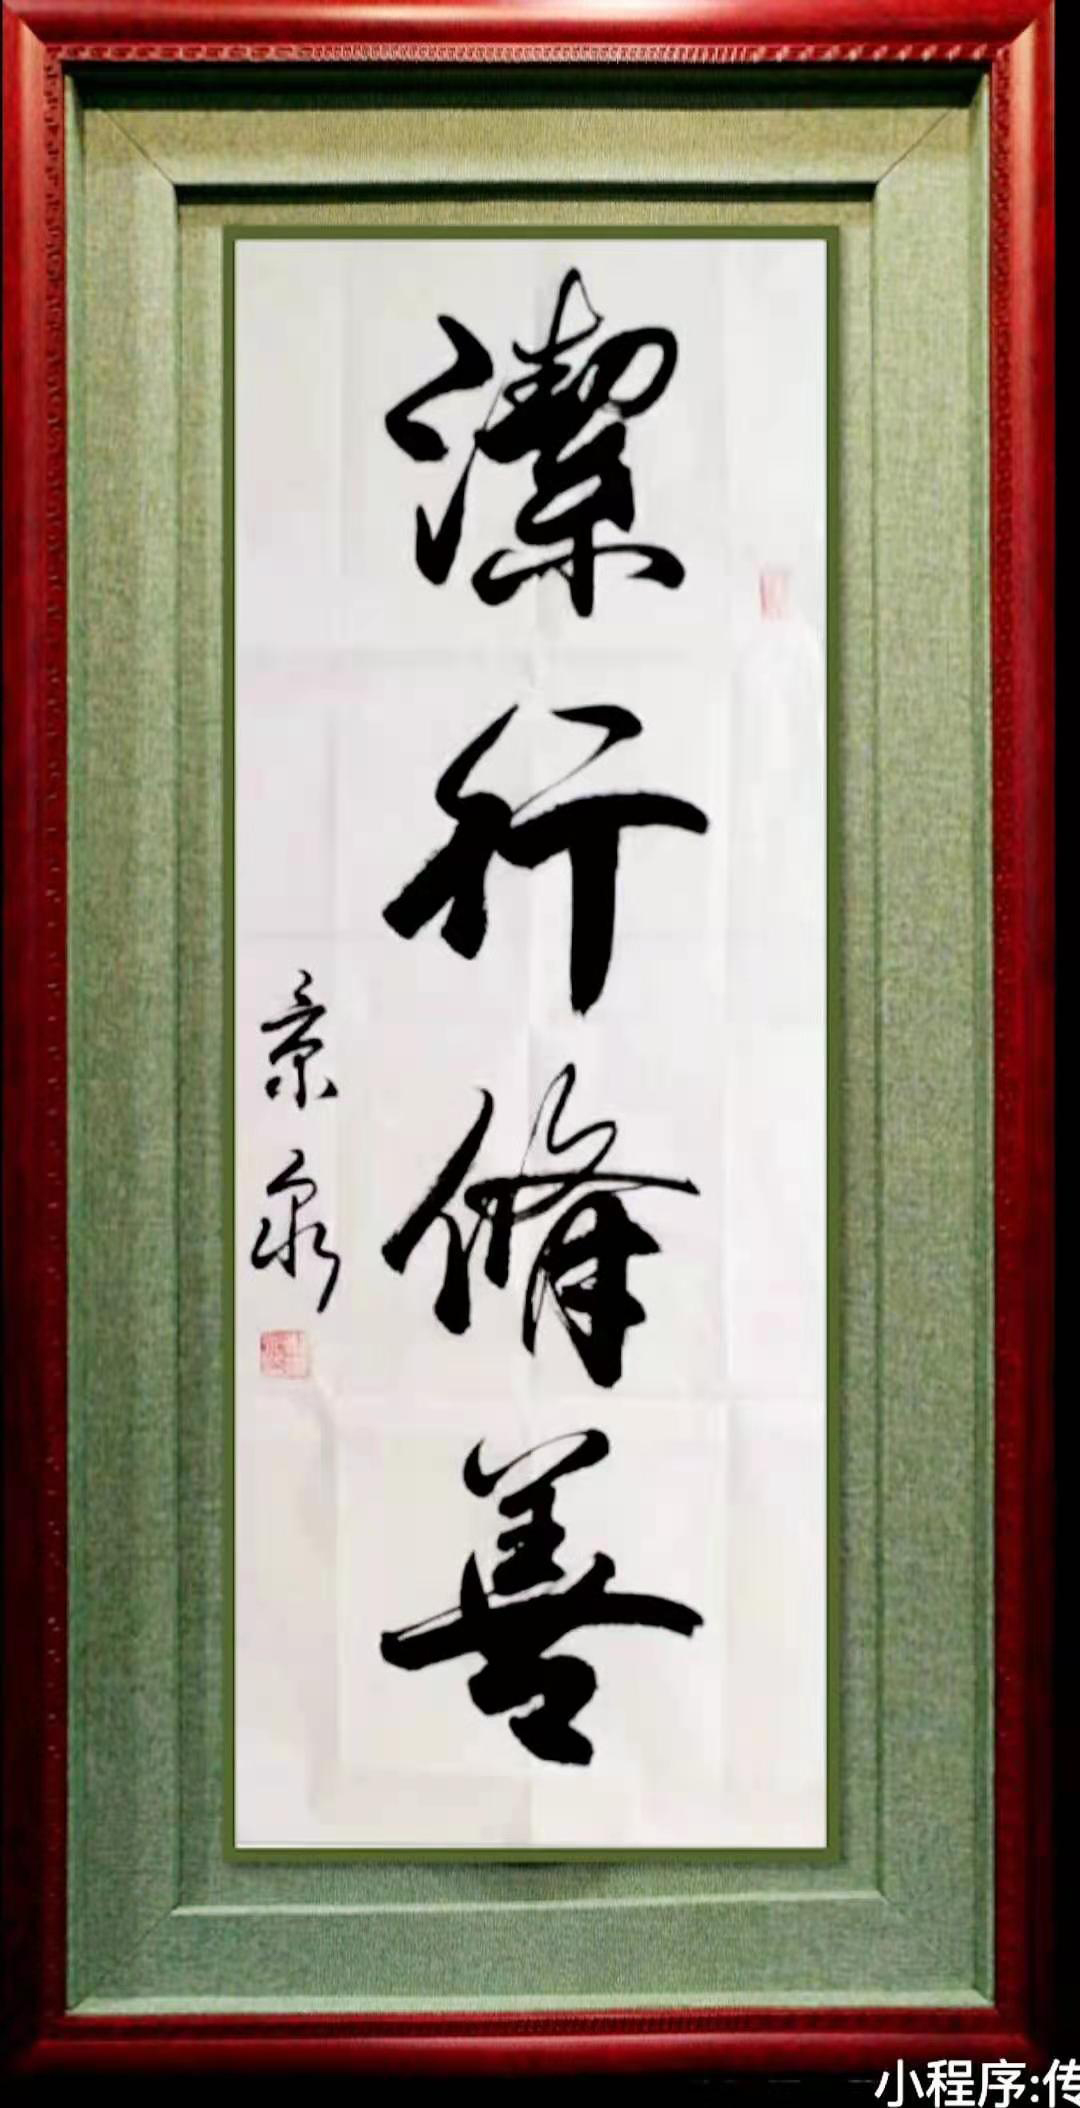 潔行脩善
景泉
小程序:传